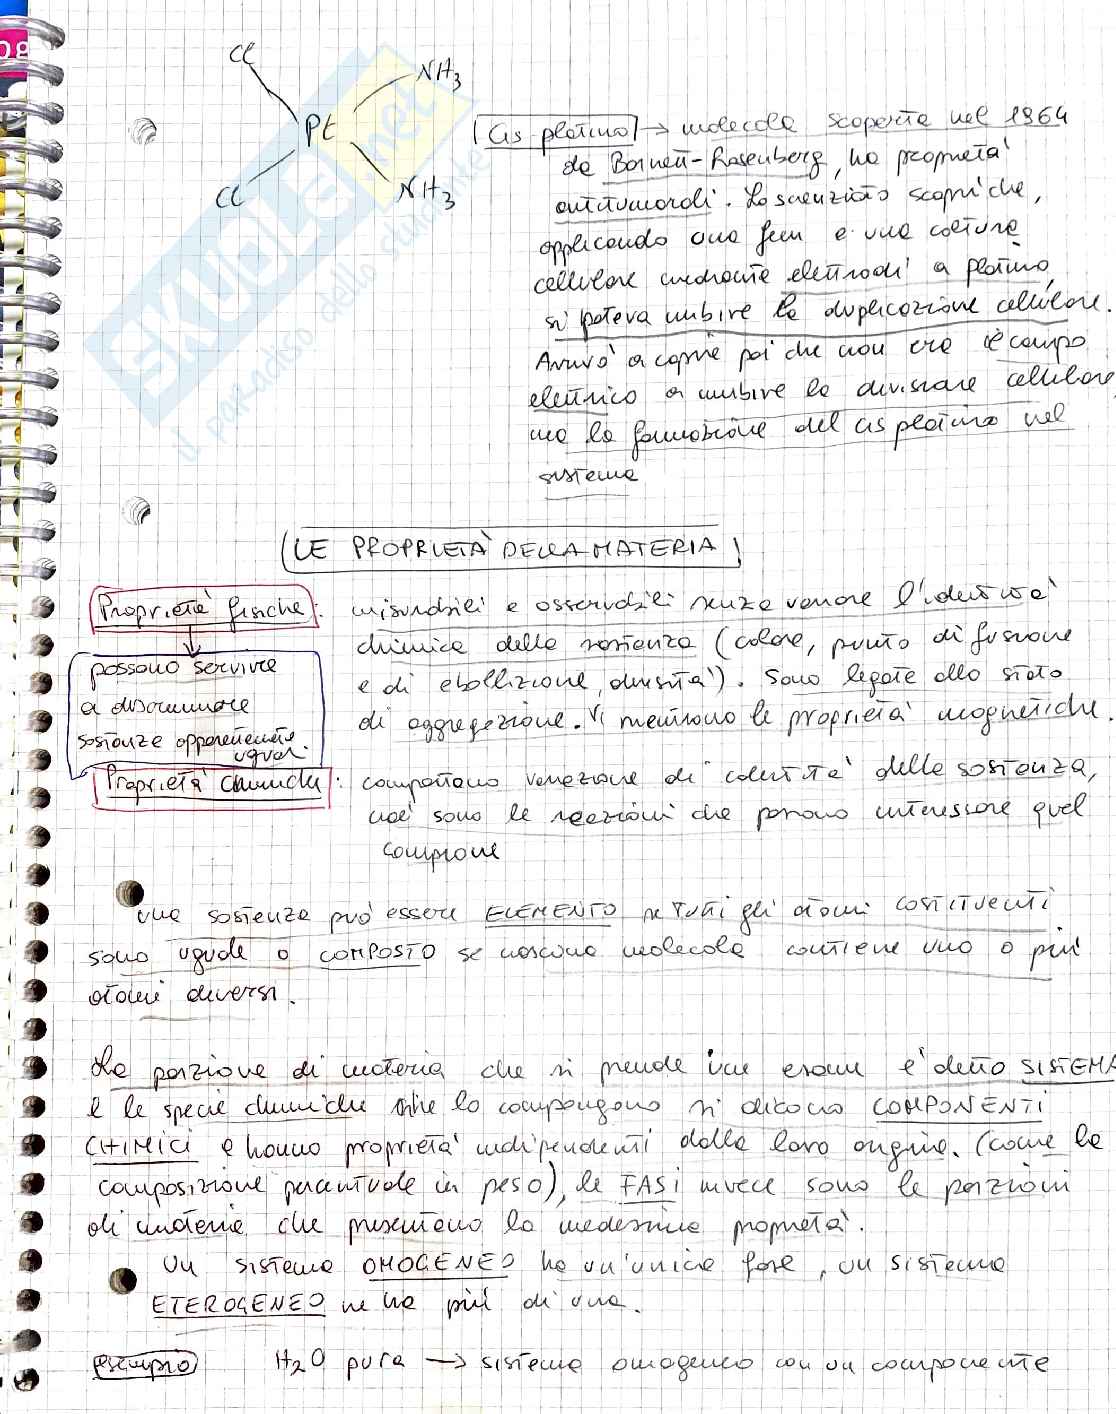 Cl
NH3
Pt
Cl
NH3
Cis-platino → molecola scoperta nel 1964
da Barnett-Rosenberg, ha proprietà
antitumorali. Lo scienziato scoprì che,
applicando una fem a una coltura
cellulare mediante elettrodi a platino,
si poteva inibire la duplicazione cellulare.
Arrivò a capire poi che non era il campo
elettrico a inibire la divisione cellulare
ma la formazione del cis platino nel
sistema
LE PROPRIETÀ DELLA MATERIA
Proprietà fisiche: misurabili e osservabili senza variare l'identità
chimica della sostanza (colore, punto di fusione
e di ebollizione, densità). Sono legate allo stato
di aggregazione. Vi rientrano le proprietà magnetiche.
possono servire
a discriminare
sostanze apparentemente
uguali.
Proprietà chimiche: comportano variazione di identità della sostanza,
cioè sono le reazioni che possono interessare quel
campione
una sostanza può essere ELEMENTO se tutti gli atomi costituenti
sono uguale o COMPOSTO se nascuna molecola contiene uno o più
atomi diversi.
La porzione di materia che si prende in esame è detto SISTEMA
e le specie chimiche che lo compongono si dicono COMPONENTI
CHIMICI e hanno proprietà indipendenti dalla loro origine. (come la
composizione percentuale in peso), le FASI invece sono le porzioni
di materia che presentano la medesima proprietà.
Un sistema OMOGENEO ha un'unica fase, un sistema
ETEROGENEO ne ha più di una.
esempio H2O pura → sistema omogeneo con un componente
SKUOLA.net
il paradiso dello studente